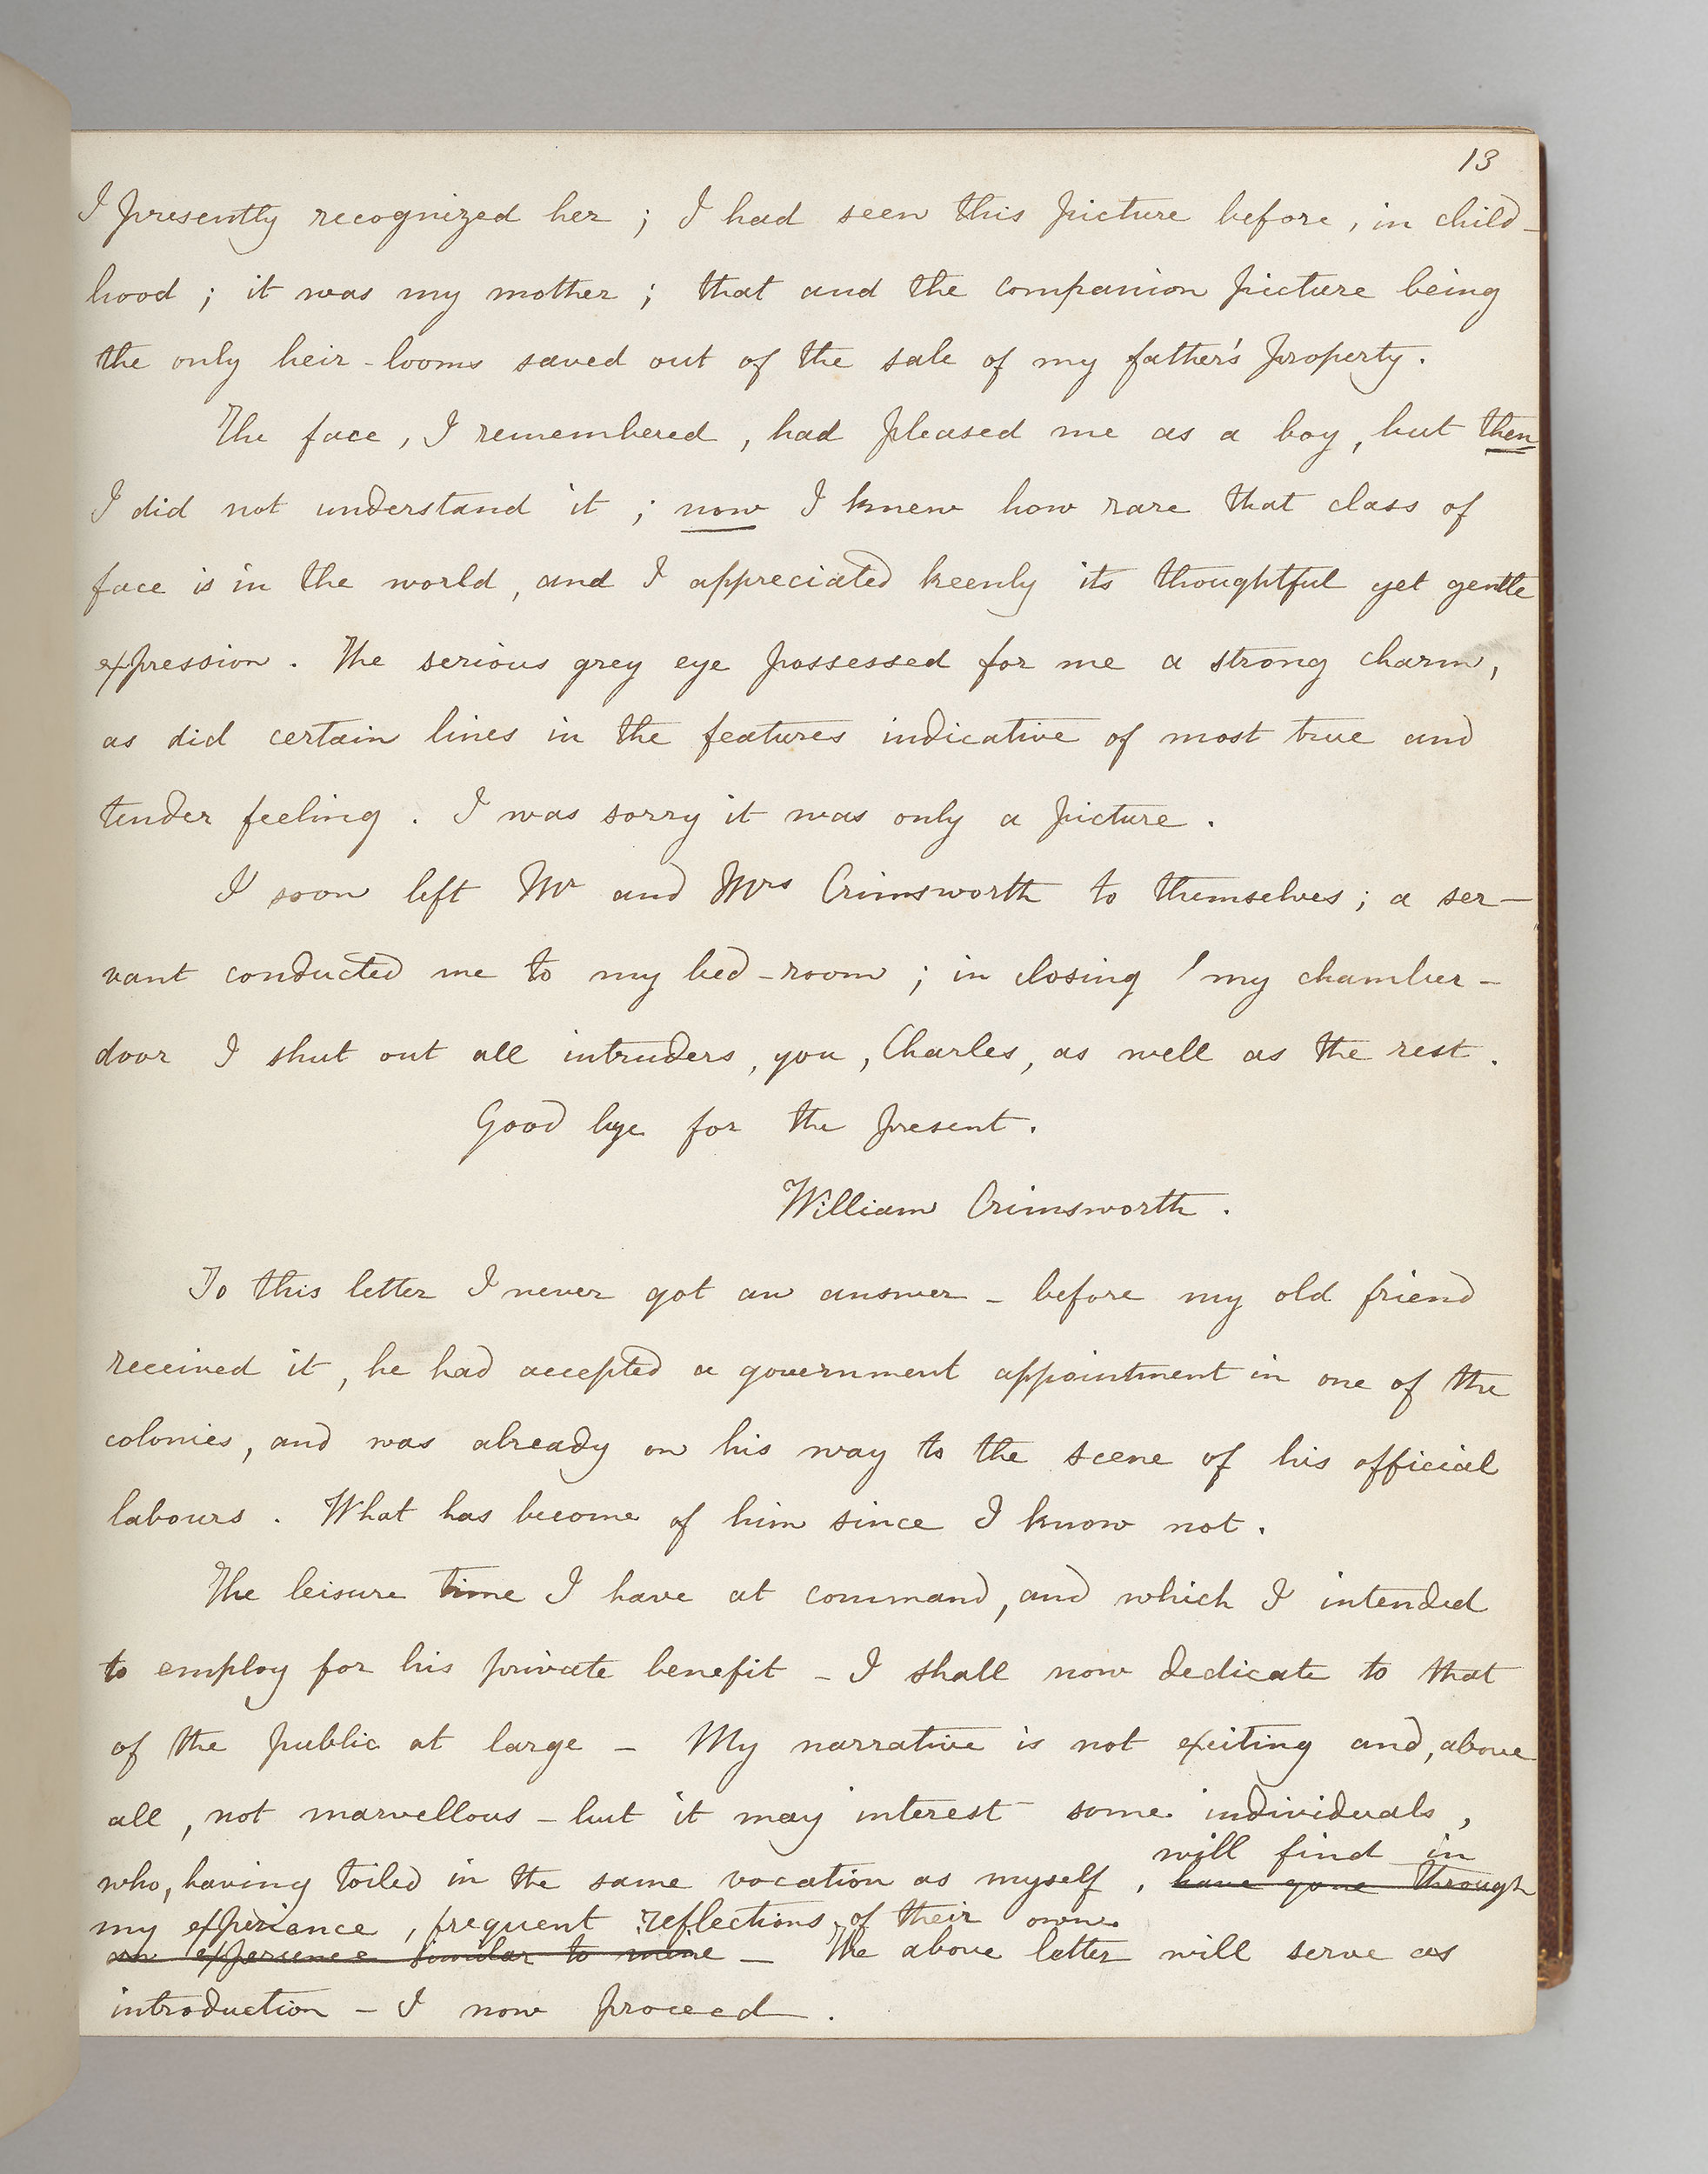 13
I presently recognized her ; I had seen this picture before, in child-
hood ; it was my mother ; that and the companion picture being
the only heir-looms saved out of the sale of my father's property.
The face, I remembered, had pleased me as a boy, but then
I did not understand it ; now I knew how rare that class of
face is in the world, and I appreciated keenly its thoughtful yet gentle
expression. The serious grey eye possessed for me a strong charm,
as did certain lines in the features indicative of most true and
tender feeling. I was sorry it was only a picture.
I soon left Mr and Mrs Crimsworth to themselves ; a ser-
vant conducted me to my bed-room ; in closing my chamber-
door I shut out all intruders, you, Charles, as well as the rest.
Good bye for the present.
William Crimsworth.
To this letter I never got an answer - before my old friend
received it, he had accepted a government appointment in one of the
colonies, and was already on his way to the scene of his official
labours. What has become of him since I know not.
The leisure time I have at command, and which I intended
to employ for his private benefit - I shall now dedicate to that
of the public at large - My narrative is not exciting and, above
all, not marvellous - but it may interest some individuals,
will find in
who, having toiled in the same vocation as myself, have gone through
my experiance, frequent reflections of their own.
an experience similar to mine - The above letter will serve as
introduction - I now proceed.